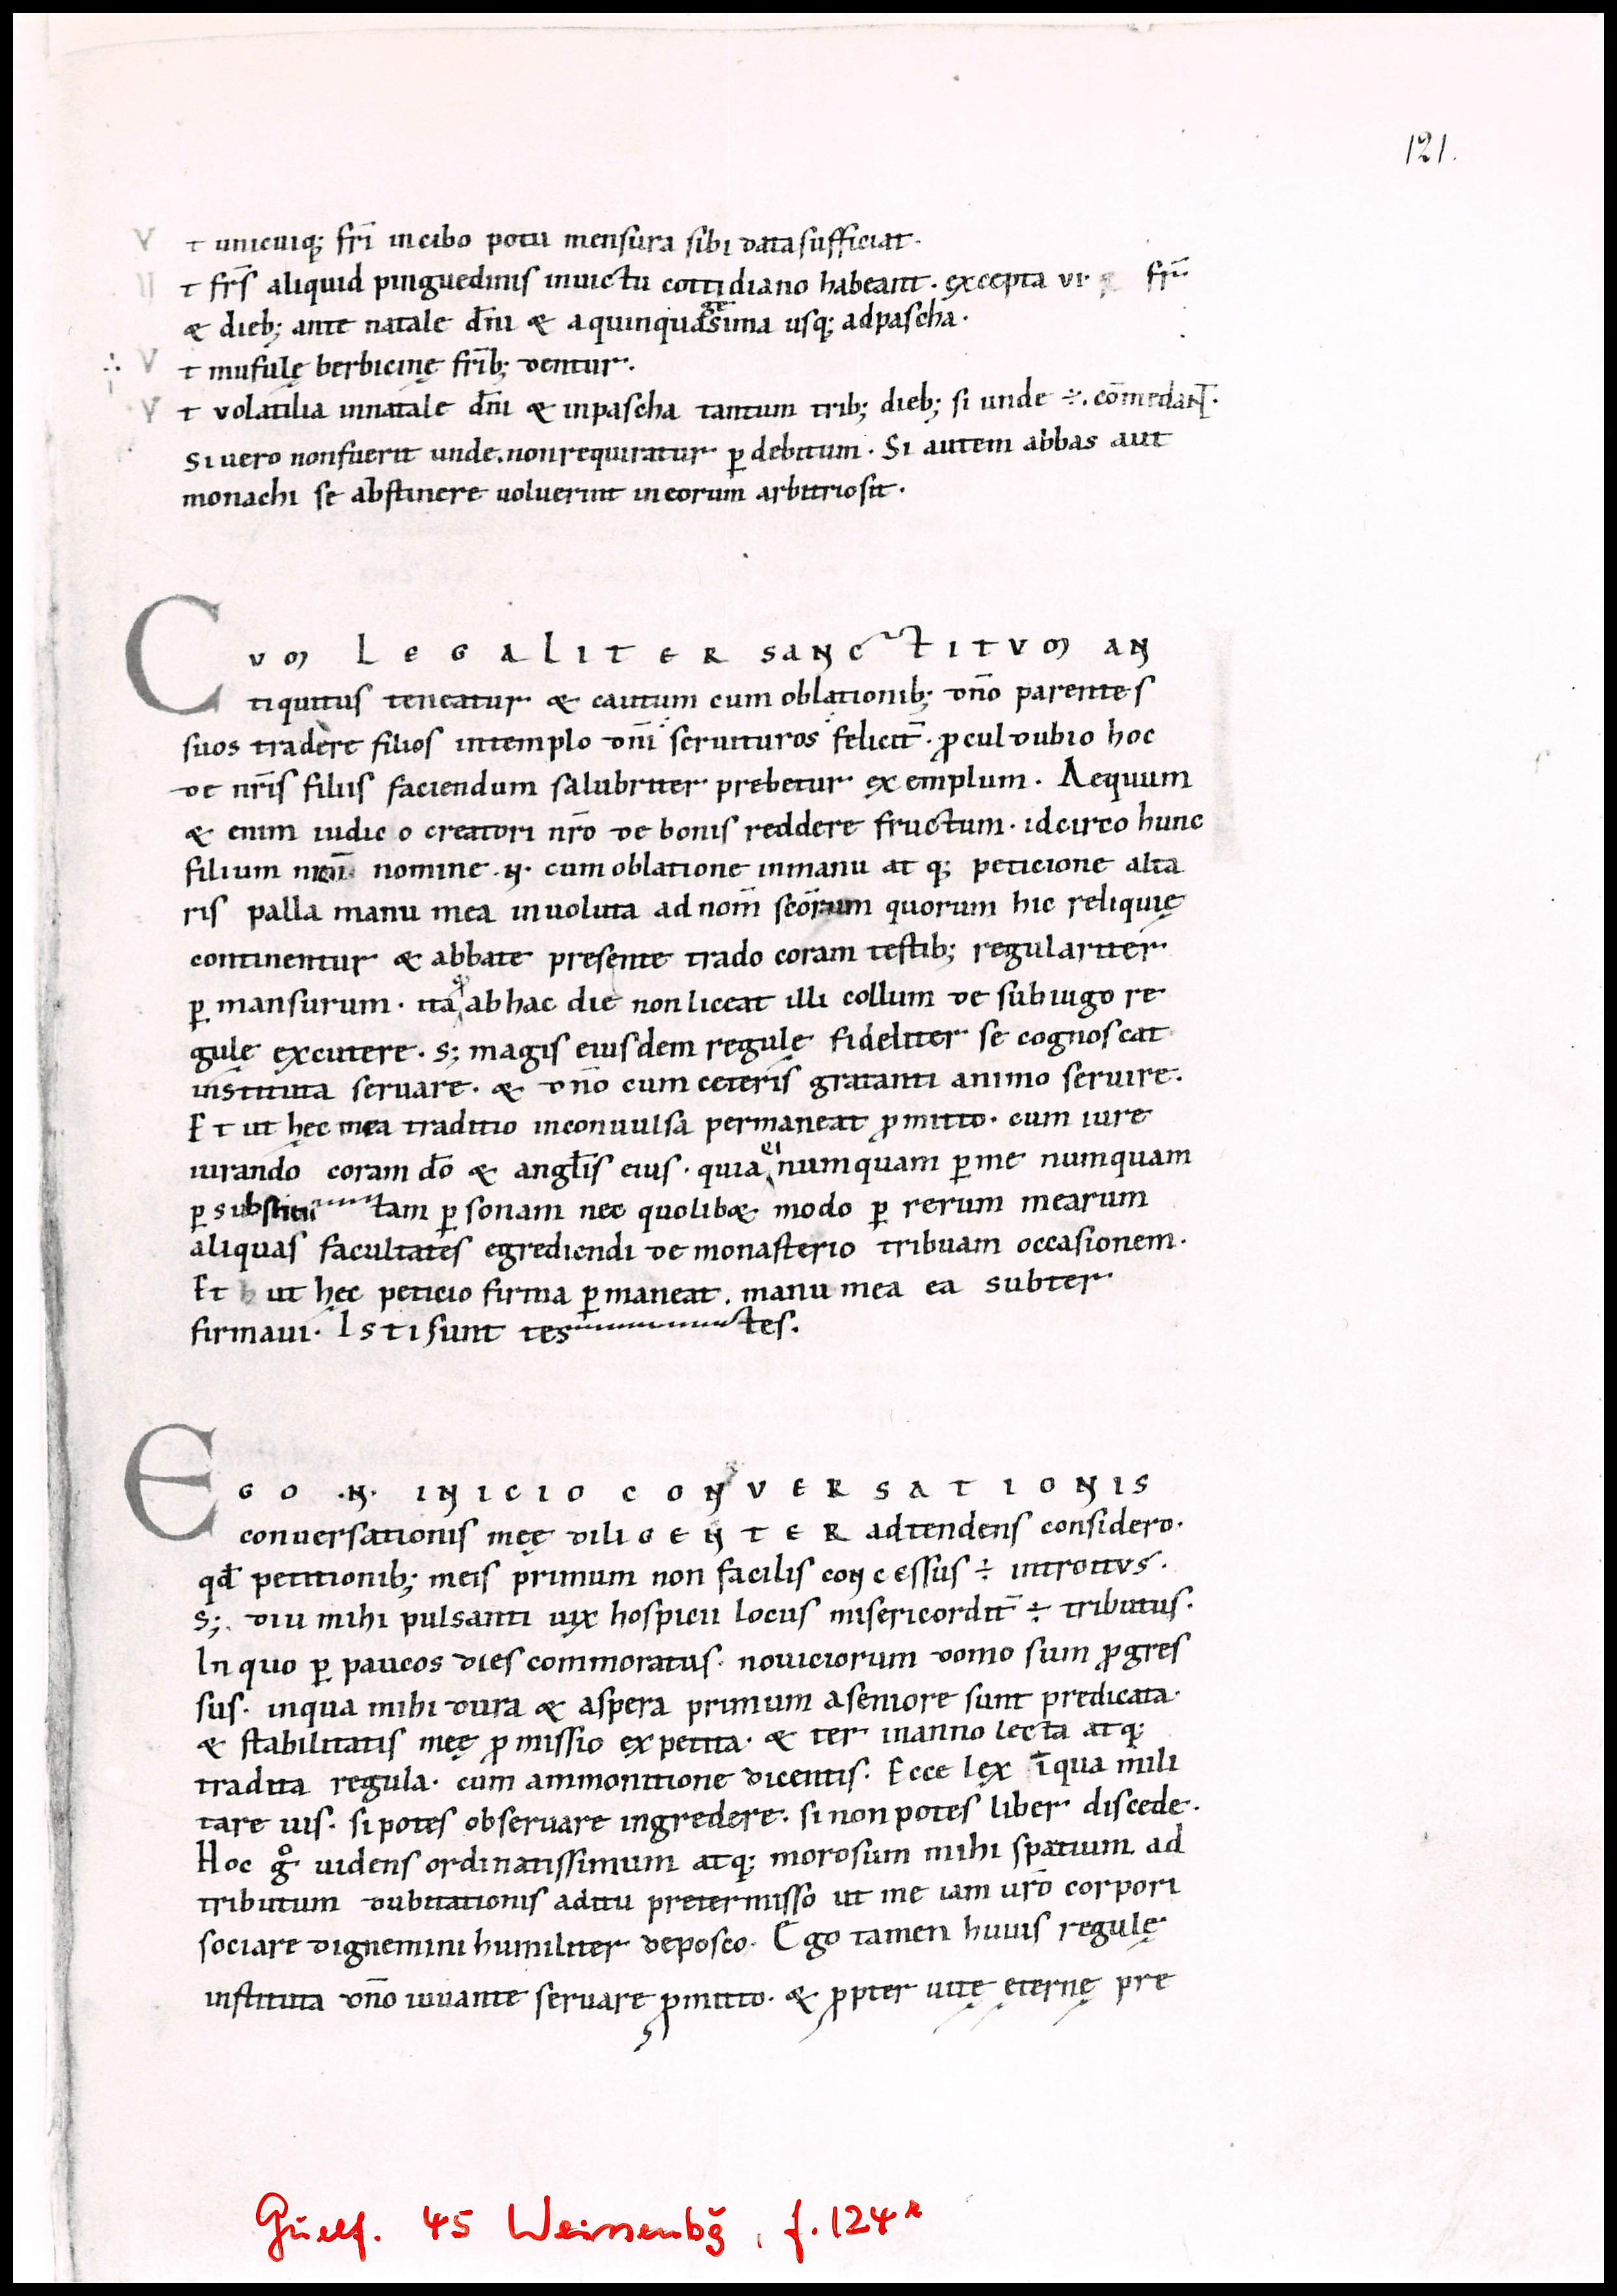 121.
V t unicuiq; fr̄i in cibo potu mensura sibi data sufficiat.
t fr̄s aliquid pinguedinis in uictu cottidiano habeant. excepta vi.
& dieb; ante natale dn̄i & a quinquagesima usq; ad pascha.
V t mufulę berbicinę fr̄ib; dentur.
V t volatilia in natale dn̄i & in pascha tantum trib; dieb; si unde ÷. com̄edant.
Si uero non fuerit unde. non requiratur ꝑ debitum. Si autem abbas aut
monachi se abstinere uoluerint in eorum arbitrio sit.
CVM LEGALITER SANCTITVM AN
tiquitus teneatur & cautum cum oblationib; dn̄o parentes
suos tradere filios in templo dn̄i seruituros felicit̄. ꝓcul dubio hoc
de nr̄is filiis faciendum salubriter prebetur exemplum. Aequum
& enim iudic o creatori nr̄o de bonis reddere fructum. idcirco hunc
filium nrm̄ nomine .N. cum oblatione in manu at q; peticione alta
ris palla manu mea inuoluta ad nom̄ sc̄orum quorum hic reliquię
continentur & abbate presente trado coram testib; regulariter
ꝑmansurum. ita ꝙ ab hac die non liceat illi collum de sub iugo re
gulę excutere. s; magis eiusdem regulę fideliter se cognoscat
instituta seruare. & dn̄o cum ceteris gratanti animo seruire.
Et ut hęc mea traditio inconuulsa permaneat ꝓmitto. cum iure
iurando coram dō & anglīs eius. quia ei numquam ꝑ me numquam
ꝑ substitutam ꝑsonam nec quolib& modo ꝑ rerum mearum
aliquas facultates egrediendi de monasterio tribuam occasionem.
Et ut hęc peticio firma ꝑmaneat. manu mea ea subter
firmaui. Isti sunt testes.
EGO .N. INICIO CONVERSATIONIS
conuersationis meę diliGENTER adtendens considero.
qd̄ petitionib; meis primum non facilis concessus ÷ introitus.
S;. diu mihi pulsanti uix hospicii locus misericordit̄ ÷ tributus.
In quo ꝑ paucos dies commoratus. nouiciorum domo sum ꝓgres
sus. in qua mihi dura & aspera primum a seniore sunt predicata.
& stabilitatis meę ꝓmissio expetita. & ter in anno lecta atq;
tradita regula. cum ammonitione dicentis. Ecce lex ī qua mili
tare uis. si potes obseruare ingredere. si non potes liber discede.
Hoc gͦ uidens ordinatissimum atq; morosum mihi spatium ad
tributum dubitationis aditu pretermisso ut me iam ur̄o corpori
sociare dignemini humiliter deposco. Ego tamen huius regulę
instituta dn̄o iuuante seruare ꝓmitto. & ꝓpter uitę eternę pre
Guelf. 45 Weissenbg, f. 124r